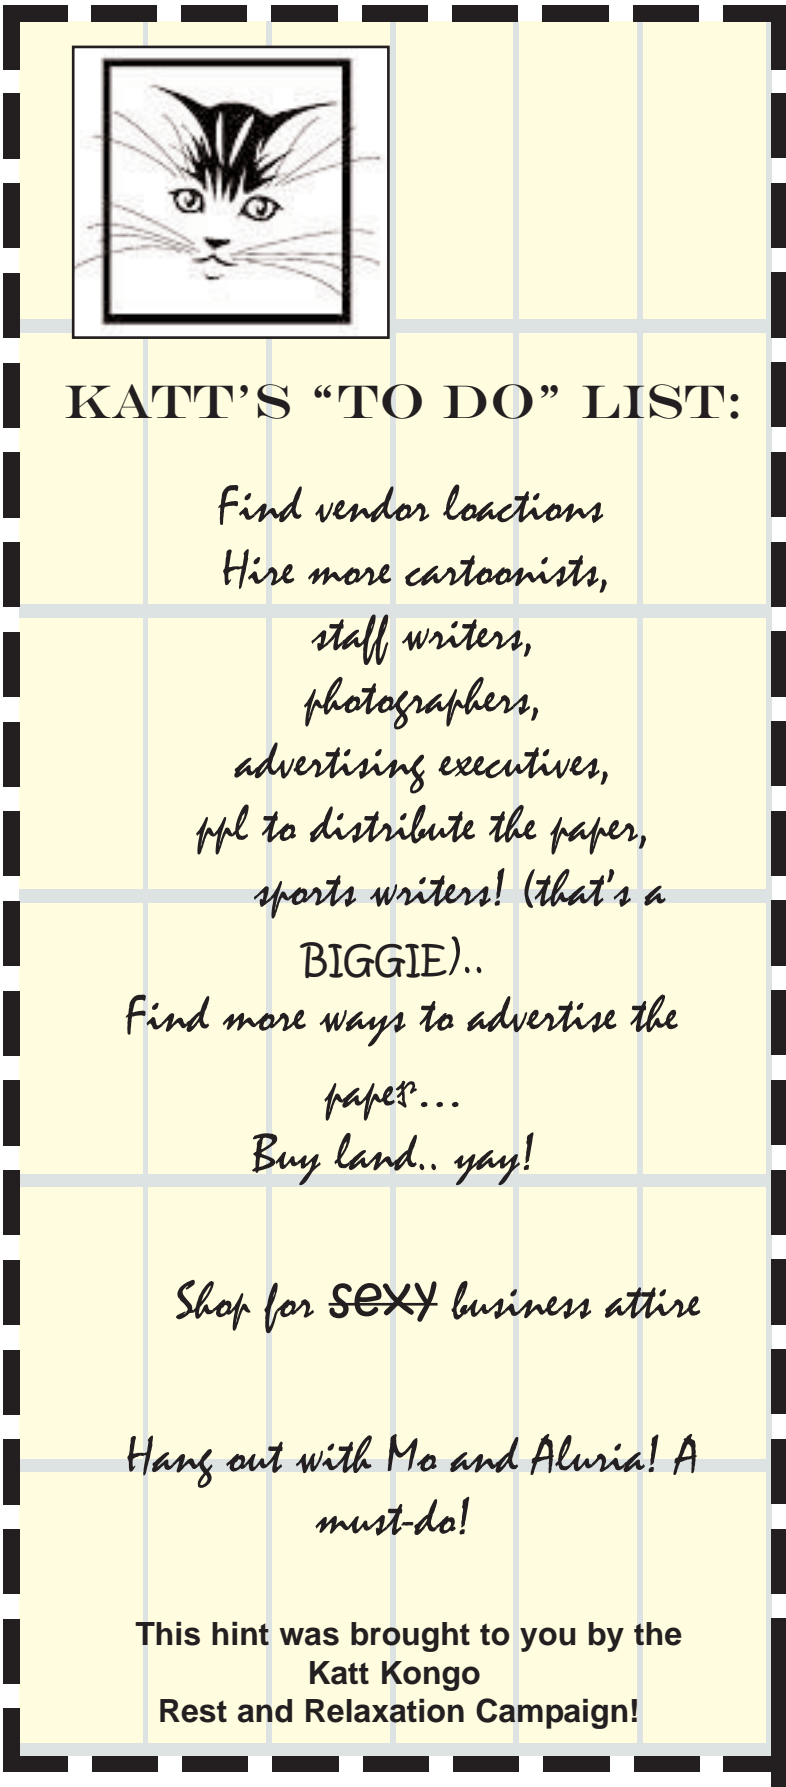 KATT'S “TO DO” LIST:
Find vendor loactions
Hire more cartoonists,
staff writers,
photographers,
advertising executives,
ppl to distribute the paper,
sports writers! (that's a
BIGGIE)..
Find more ways to advertise the
paper...
Buy land.. yay!
Shop for sexy business attire
Hang out with Mo and Aluria! A
must-do!
This hint was brought to you by the
Katt Kongo
Rest and Relaxation Campaign!